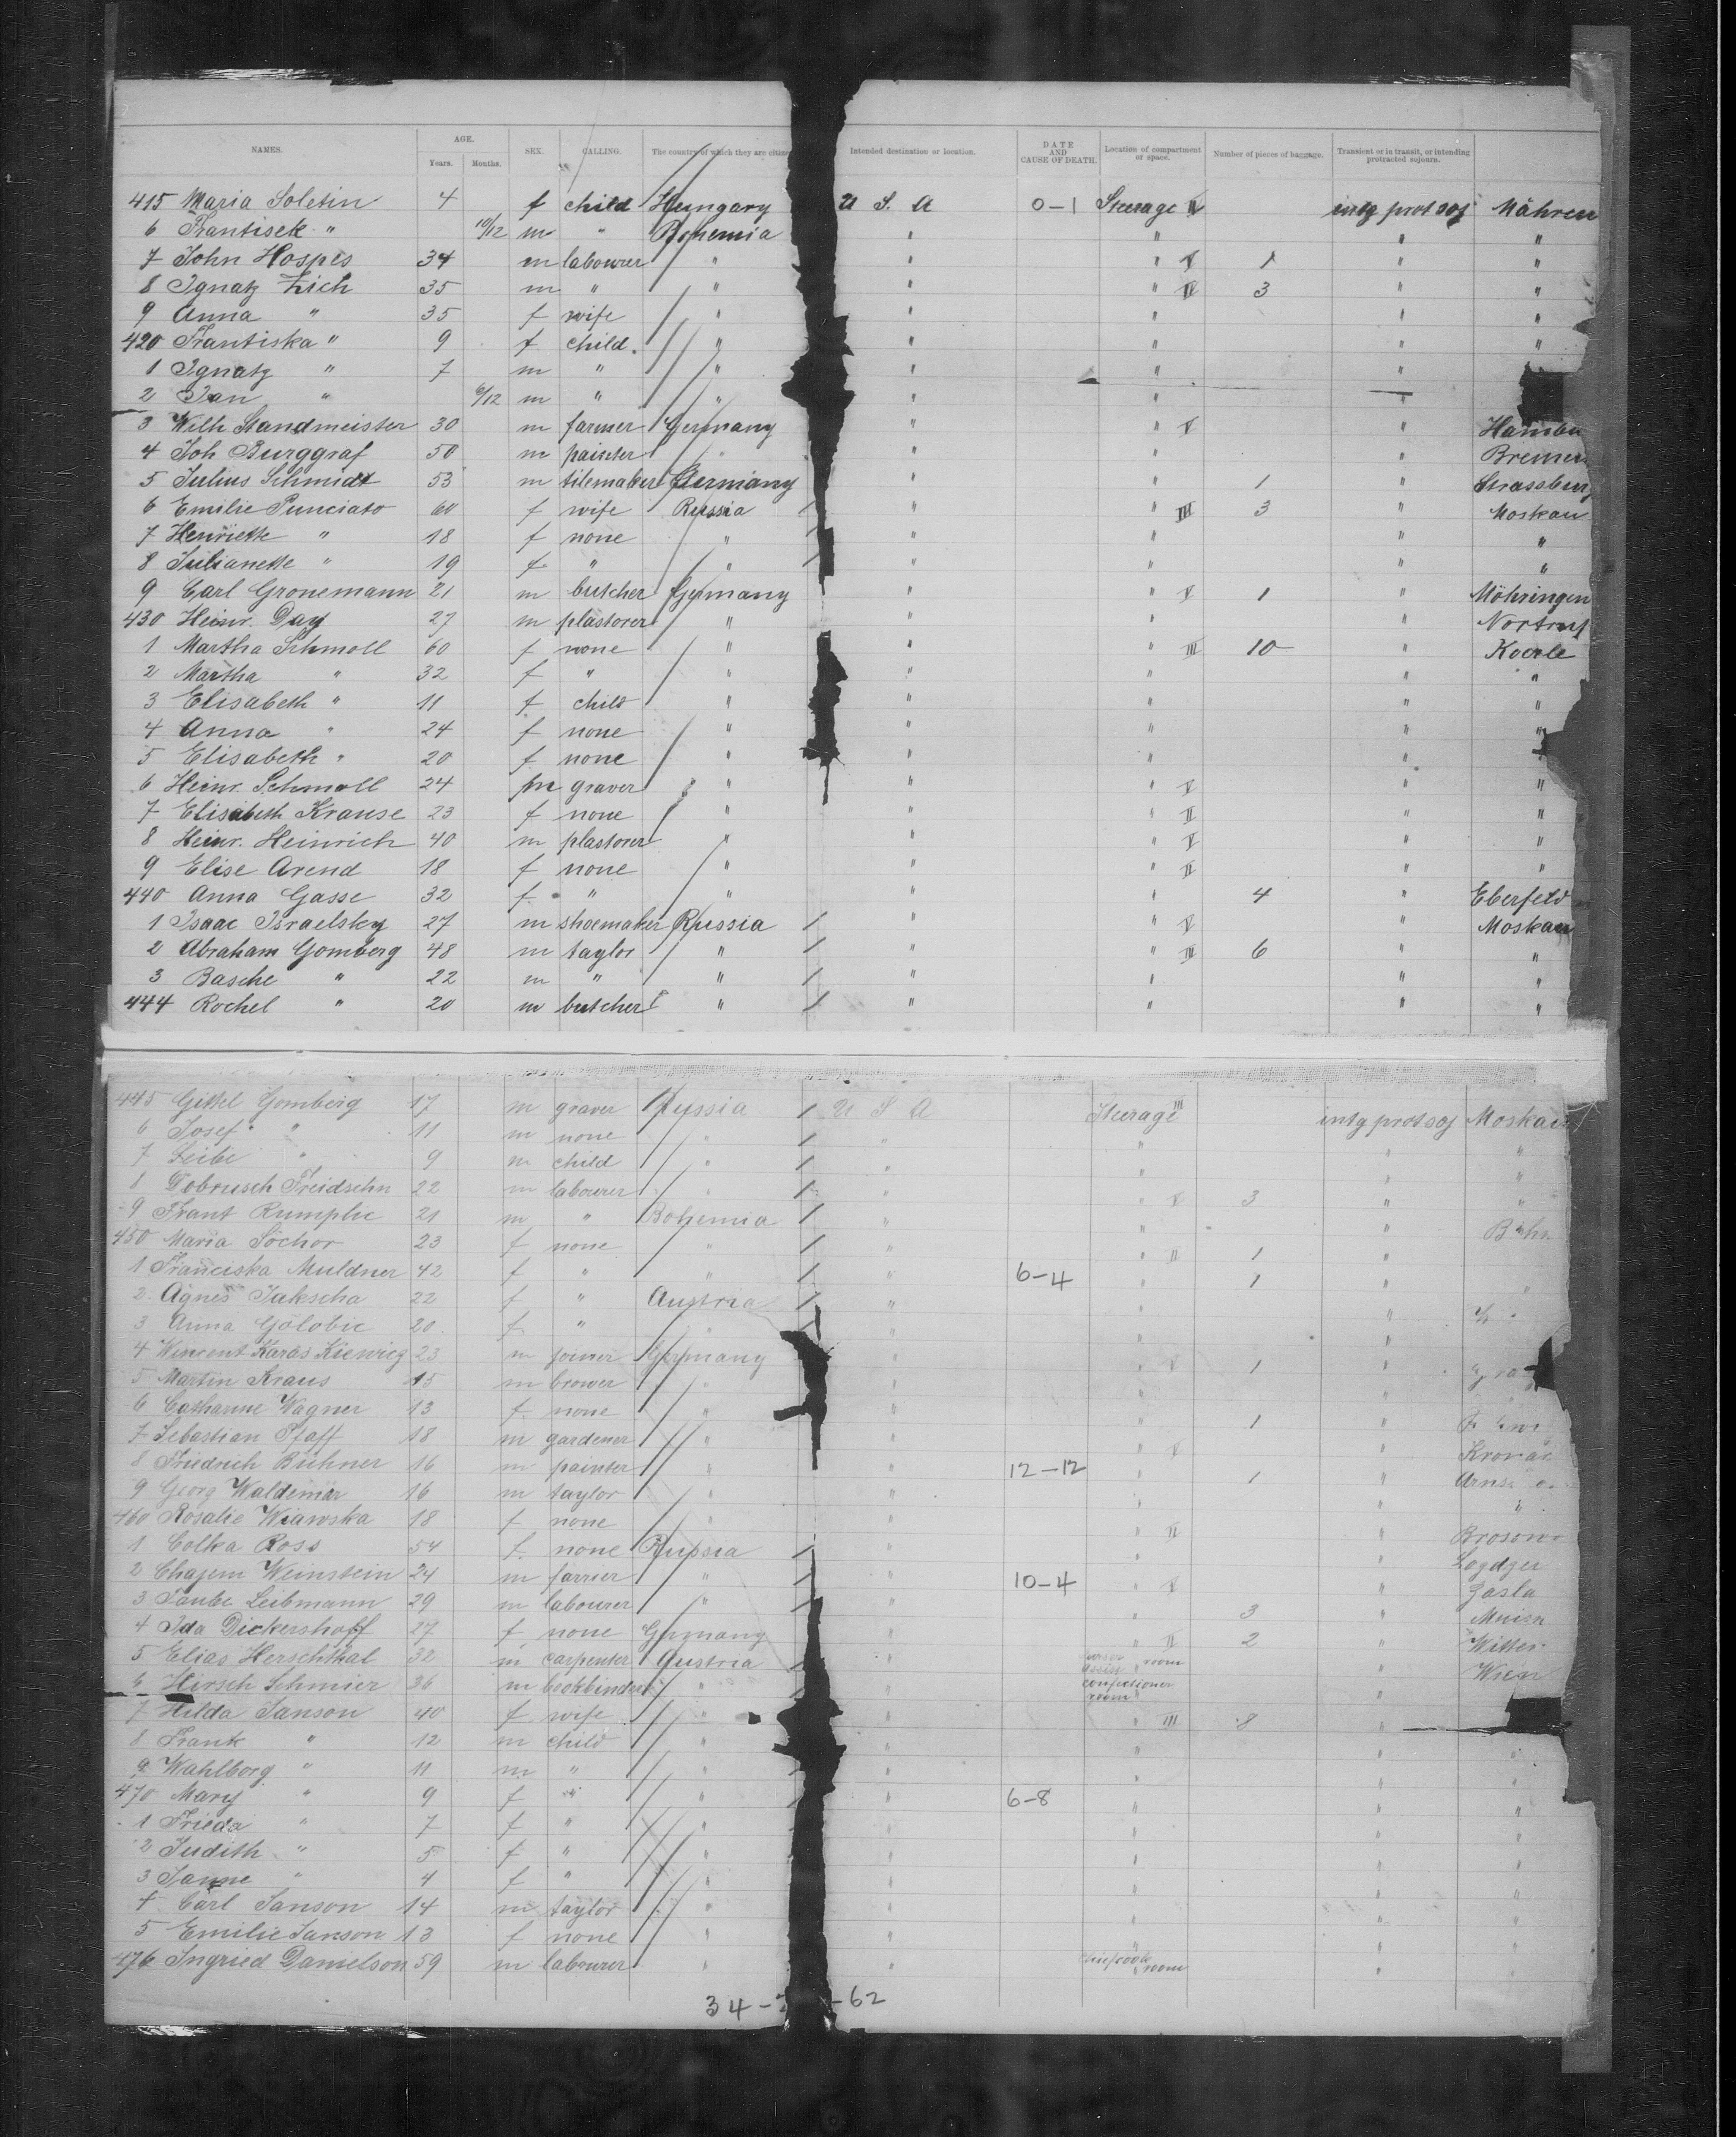 NAMES. AGE. Years. Months. SEX. CALLING. The country of which they are citizens Intended destination or location. DATE AND CAUSE OF DEATH. Location of compartment or space. Number of pieces of baggage. Transient or in transit, or intending protracted sojourn.
415 Maria Soletin 4 f child Hungary U S A 0-1 Steerage II intg prot soj Mähren
6 Frantisek " 10/12 m " Bohemia " " " "
7 John Hospes 34 m labourer " " " V 1 " "
8 Ignatz Zich 35 m " " " " IV 3 " "
9 Anna " 35 f wife " " " " "
420 Frantiska " 9 f child. " " " " "
1 Ignatz " 7 m " " " " "
2 Jan " 6/12 m " " " " "
3 Wilh Standmeister 30 m farmer Germany " " V "
4 Joh Burggraf 50 m painter " " " " Bremen
5 Julius Schmidt 53 m tilemaker Germany " " 1 " Strassburg
6 Emilie Punciato 60 f wife Russia " " III 3 " Moskau
7 Henriette " 18 f none " " " " "
8 Julianette " 19 f " " " " " "
9 Carl Gronemann 21 m butcher Germany " " V 1 " Möhringen
430 Heinr. Day 27 m plastorer " " " "
1 Martha Schmoll 60 f none " " " III 10 " Koerle
2 Martha " 32 f " " " " " "
3 Elisabeth " 11 f child " " " " "
4 Anna " 24 f none " " " " "
5 Elisabeth " 20 f none " " " " "
6 Heinr. Schmoll 24 m graver " " " V " "
7 Elisabeth Krause 23 f none " " " II " "
8 Heinr. Heinrich 40 m plastorer " " " V " "
9 Elise Arend 18 f none " " " II " "
440 Anna Gasse 32 f " " " " 4 " Eberfeld
1 Isaac Israelsky 27 m shoemaker Russia / " " V " Moskau
2 Abraham Gomberg 48 m taylor " / " " III 6 " "
3 Basche " 22 m " " / " " "
444 Rochel " 20 m butcher " / " " " "
445 Gittel Gomberg 17 m graver Russia / U S A Steerage III intg prot soj Moskau
6 Josef " 11 m none " / " " " "
7 Leibe " 9 m child " / " " " "
8 Dobrusch Freidsehn 22 m labourer " / " " V 3 " "
9 Frant Rumplic 21 m " Bohemia / " " "
450 Maria Sochor 23 f none " / " " II 1 "
1 Franciska Muldner 42 f " " / " 6-4 " 1 " "
2 Agnes Jakscha 22 f " Austria / " " "
3 Anna Golobic 20 f " " / " " "
4 Wincent Karas Kiewicz 23 m joiner Germany " " V 1 "
5 Martin Kraus 15 m brower " " " "
6 Catharine Wagner 13 f none " " " 1 "
7 Sebastian Pfaff 18 m gardener " " " V "
8 Friedrich Bühner 16 m painter " " 12-12 " 1 "
9 Georg Waldemar 16 m taylor " " " " "
460 Rosalie Wiawska 18 f none " " " II "
1 Colka Ross 54 f none Russia / " " "
2 Chajem Weinstein 24 m farrier " / " 10-4 " V " Zasla
3 Taube Leibmann 29 m labourer " / " " 3 "
4 Ida Dickershoff 27 f none Germany " " II 2 "
5 Elias Herschthal 32 m carpenter Austria / " room " Wien
6 Hirsch Schmier 36 m bookbinder " / " confectioner room "
7 Hilda Janson 40 f wife " " " III 8 "
8 Frank " 12 m child " " " " "
9 Wahlborg " 11 m " " " " " "
470 Mary " 9 f " " " 6-8 " " "
1 Frieda " 7 f " " " " " "
2 Judith " 5 f " " " " " "
3 Janne " 4 f " " " " " "
4 Carl Janson 14 m taylor " " " " "
5 Emilie Janson 13 f none " " " " "
476 Ingried Danielson 59 m labourer " " room " "
34- -62